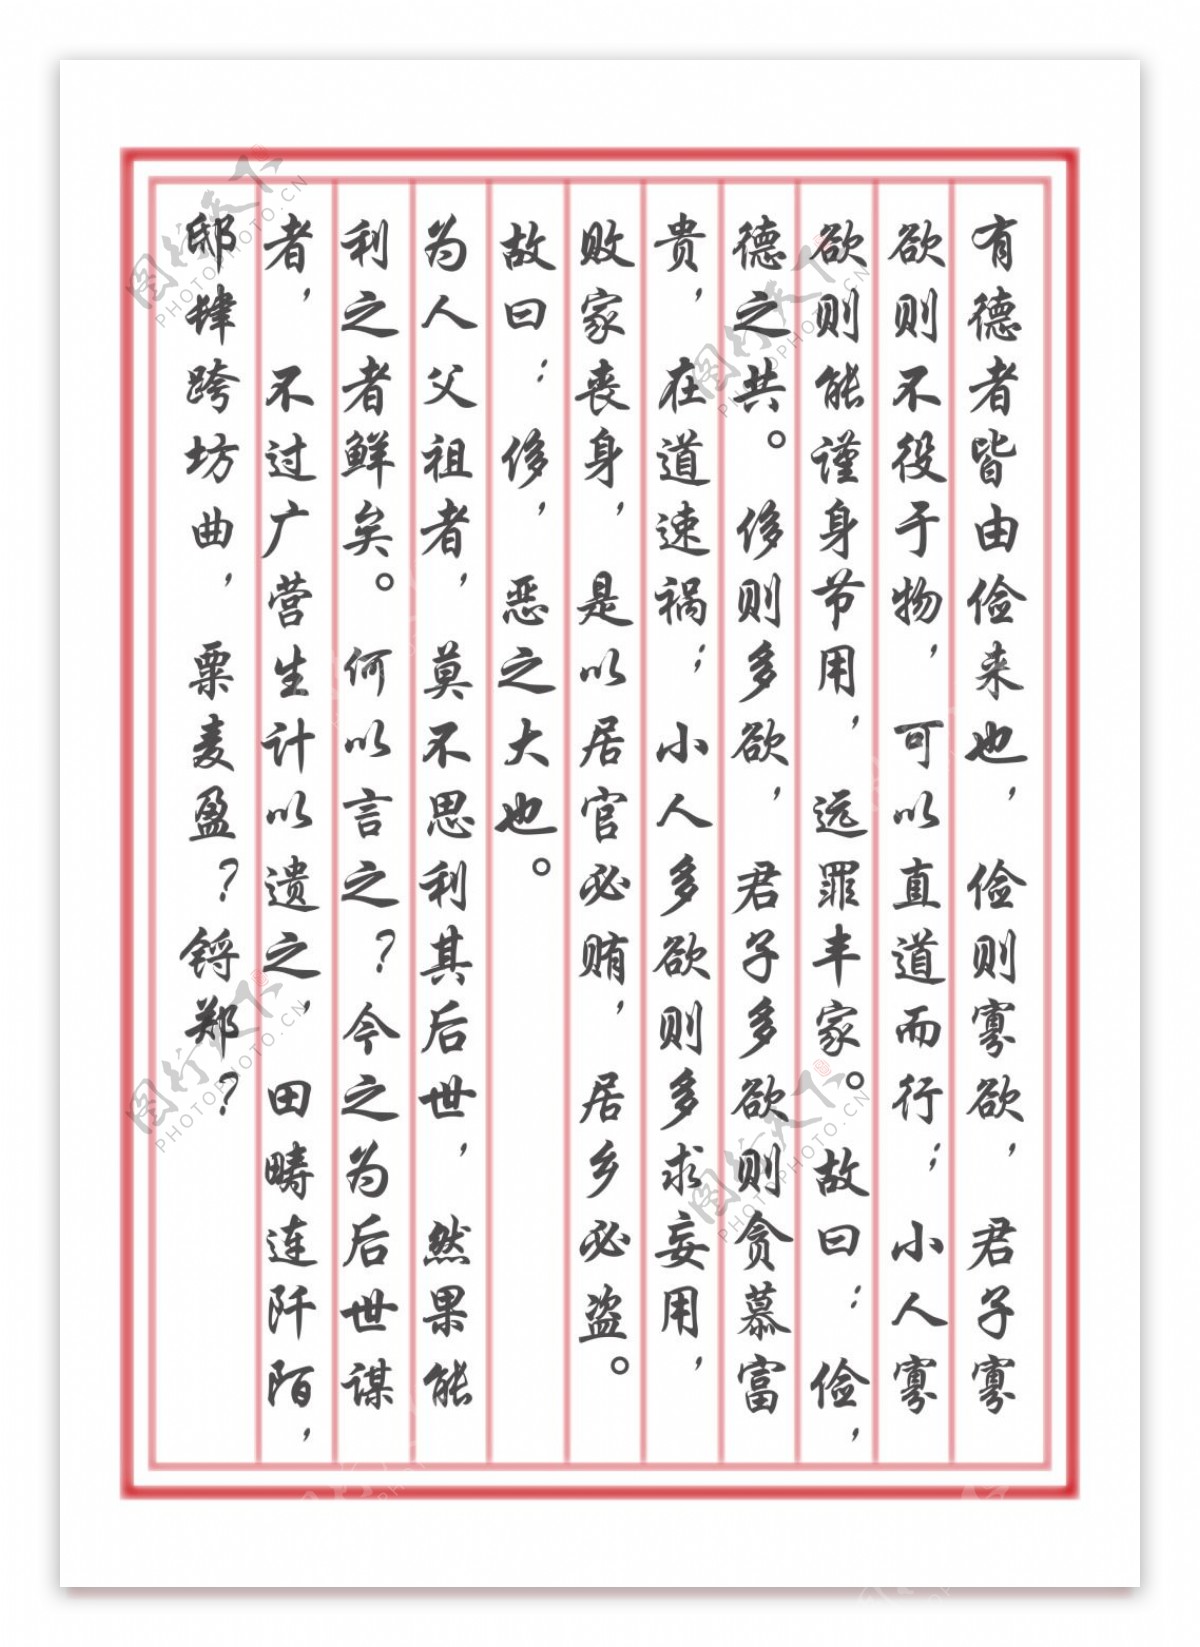 有德者皆由俭来也，俭则寡欲，君子寡
欲则不役于物，可以直道而行；小人寡
欲则能谨身节用，远罪丰家。故曰：俭，
德之共。侈则多欲，君子多欲则贪慕富
贵，在道速祸；小人多欲则多求妄用，
败家丧身，是以居官必贿，居乡必盗。
故曰：侈，恶之大也。
为人父祖者，莫不思利其后世，然果能
利之者鲜矣。何以言之？今之为后世谋
者，不过广营生计以遗之，田畴连阡陌，
邸肆跨坊曲，粟麦盈？锊郑？
图行天下
PHOTOPHOTO.CN
图行天下
PHOTOPHOTO.CN
图行天下
PHOTOPHOTO.CN
图行天下
PHOTOPHOTO.CN